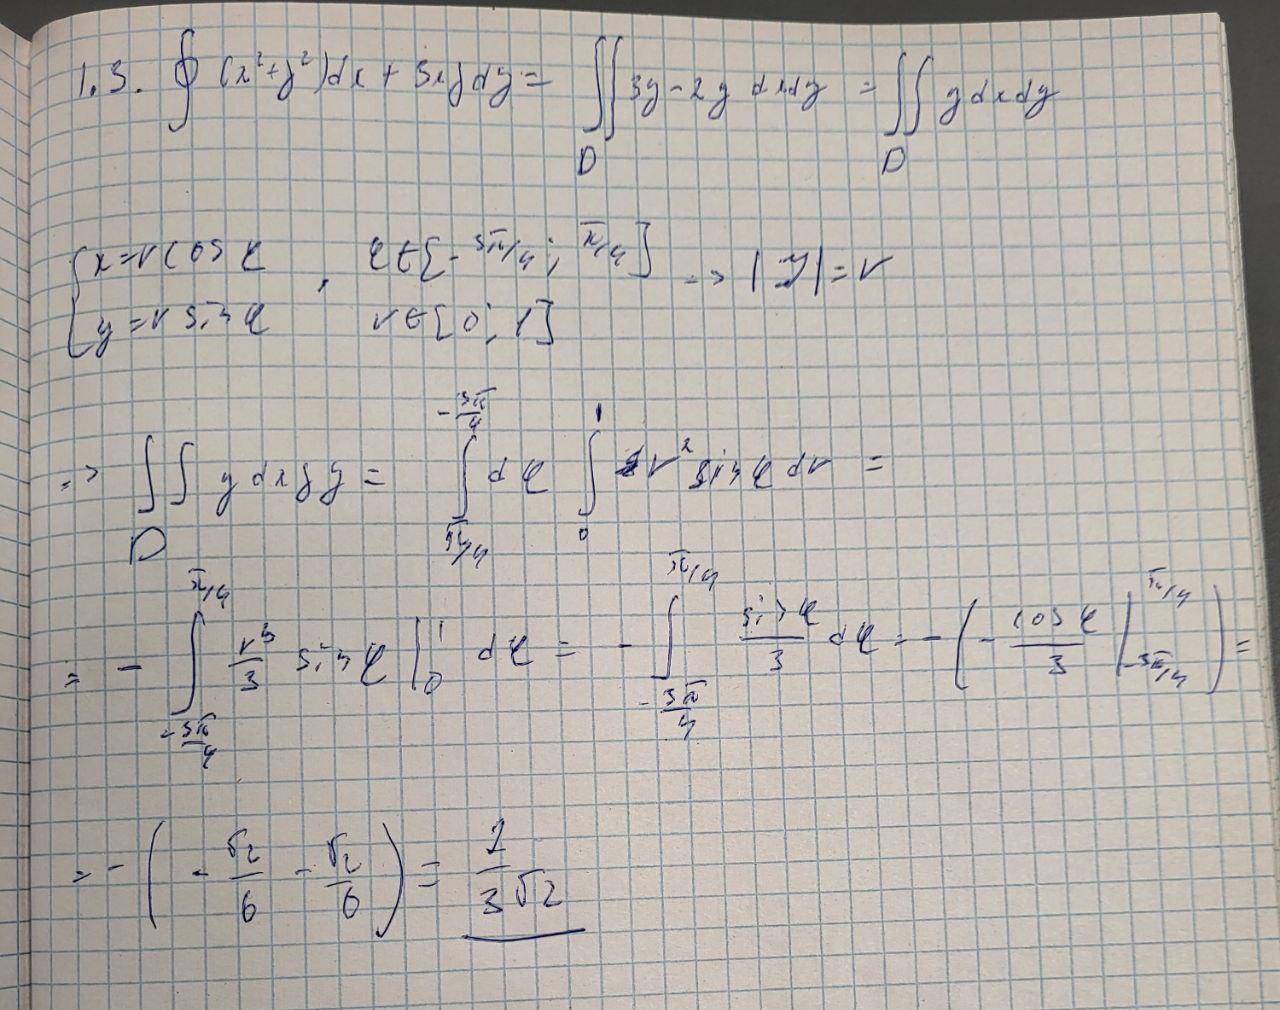 1.3. ∮ (x²+y²)dx + 3xy dy = ∬_D 3y-2y dxdy = ∬_D y dxdy
{x=r cos φ, y=r sin φ, φ∈[-3π/4; π/4] r∈[0; 1] => |J|=r
=> ∬_D y dxdy = ∫_{π/4}^{-3π/4} dφ ∫_0^1 r² sin φ dr =
= - ∫_{-3π/4}^{π/4} r³/3 sin φ |_0^1 dφ = - ∫_{-3π/4}^{π/4} sin φ/3 dφ = - (- cos φ/3 |_{-3π/4}^{π/4}) =
= - (- √2/6 - √2/6) = 2/3√2